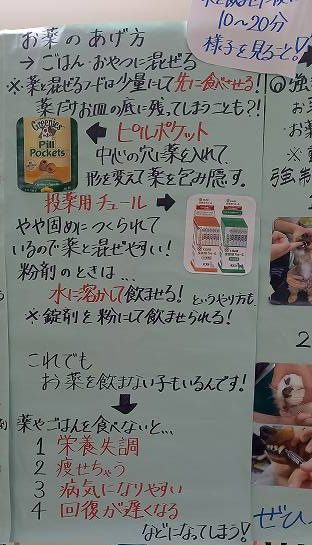 10～20分
様子を見ること。!
お薬のあげ方
→ごはん・おやつに混ぜる
※薬と混ぜるフードは少量にして先に食べせる!
薬だけお皿の底に残ってしまうことも?!
Greenies
Pill
Pockets
←ピルポケット
中心の穴に薬を入れて
形を変えて薬を包み隠す。
投薬用チュール→
やや固めにつくられて
いるので薬と混ぜやすい!
粉剤のときは…
水に溶かして飲ませる!というやり方も
※錠剤を粉にして飲ませられる!
これでも
お薬を飲まない子もいるんです!
薬やごはんを食べないと…
1 栄養失調
2 痩せちゃう
3 病気になりやすい
4 回復が遅くなる
などになってしまう!
強制
2
ぜひ